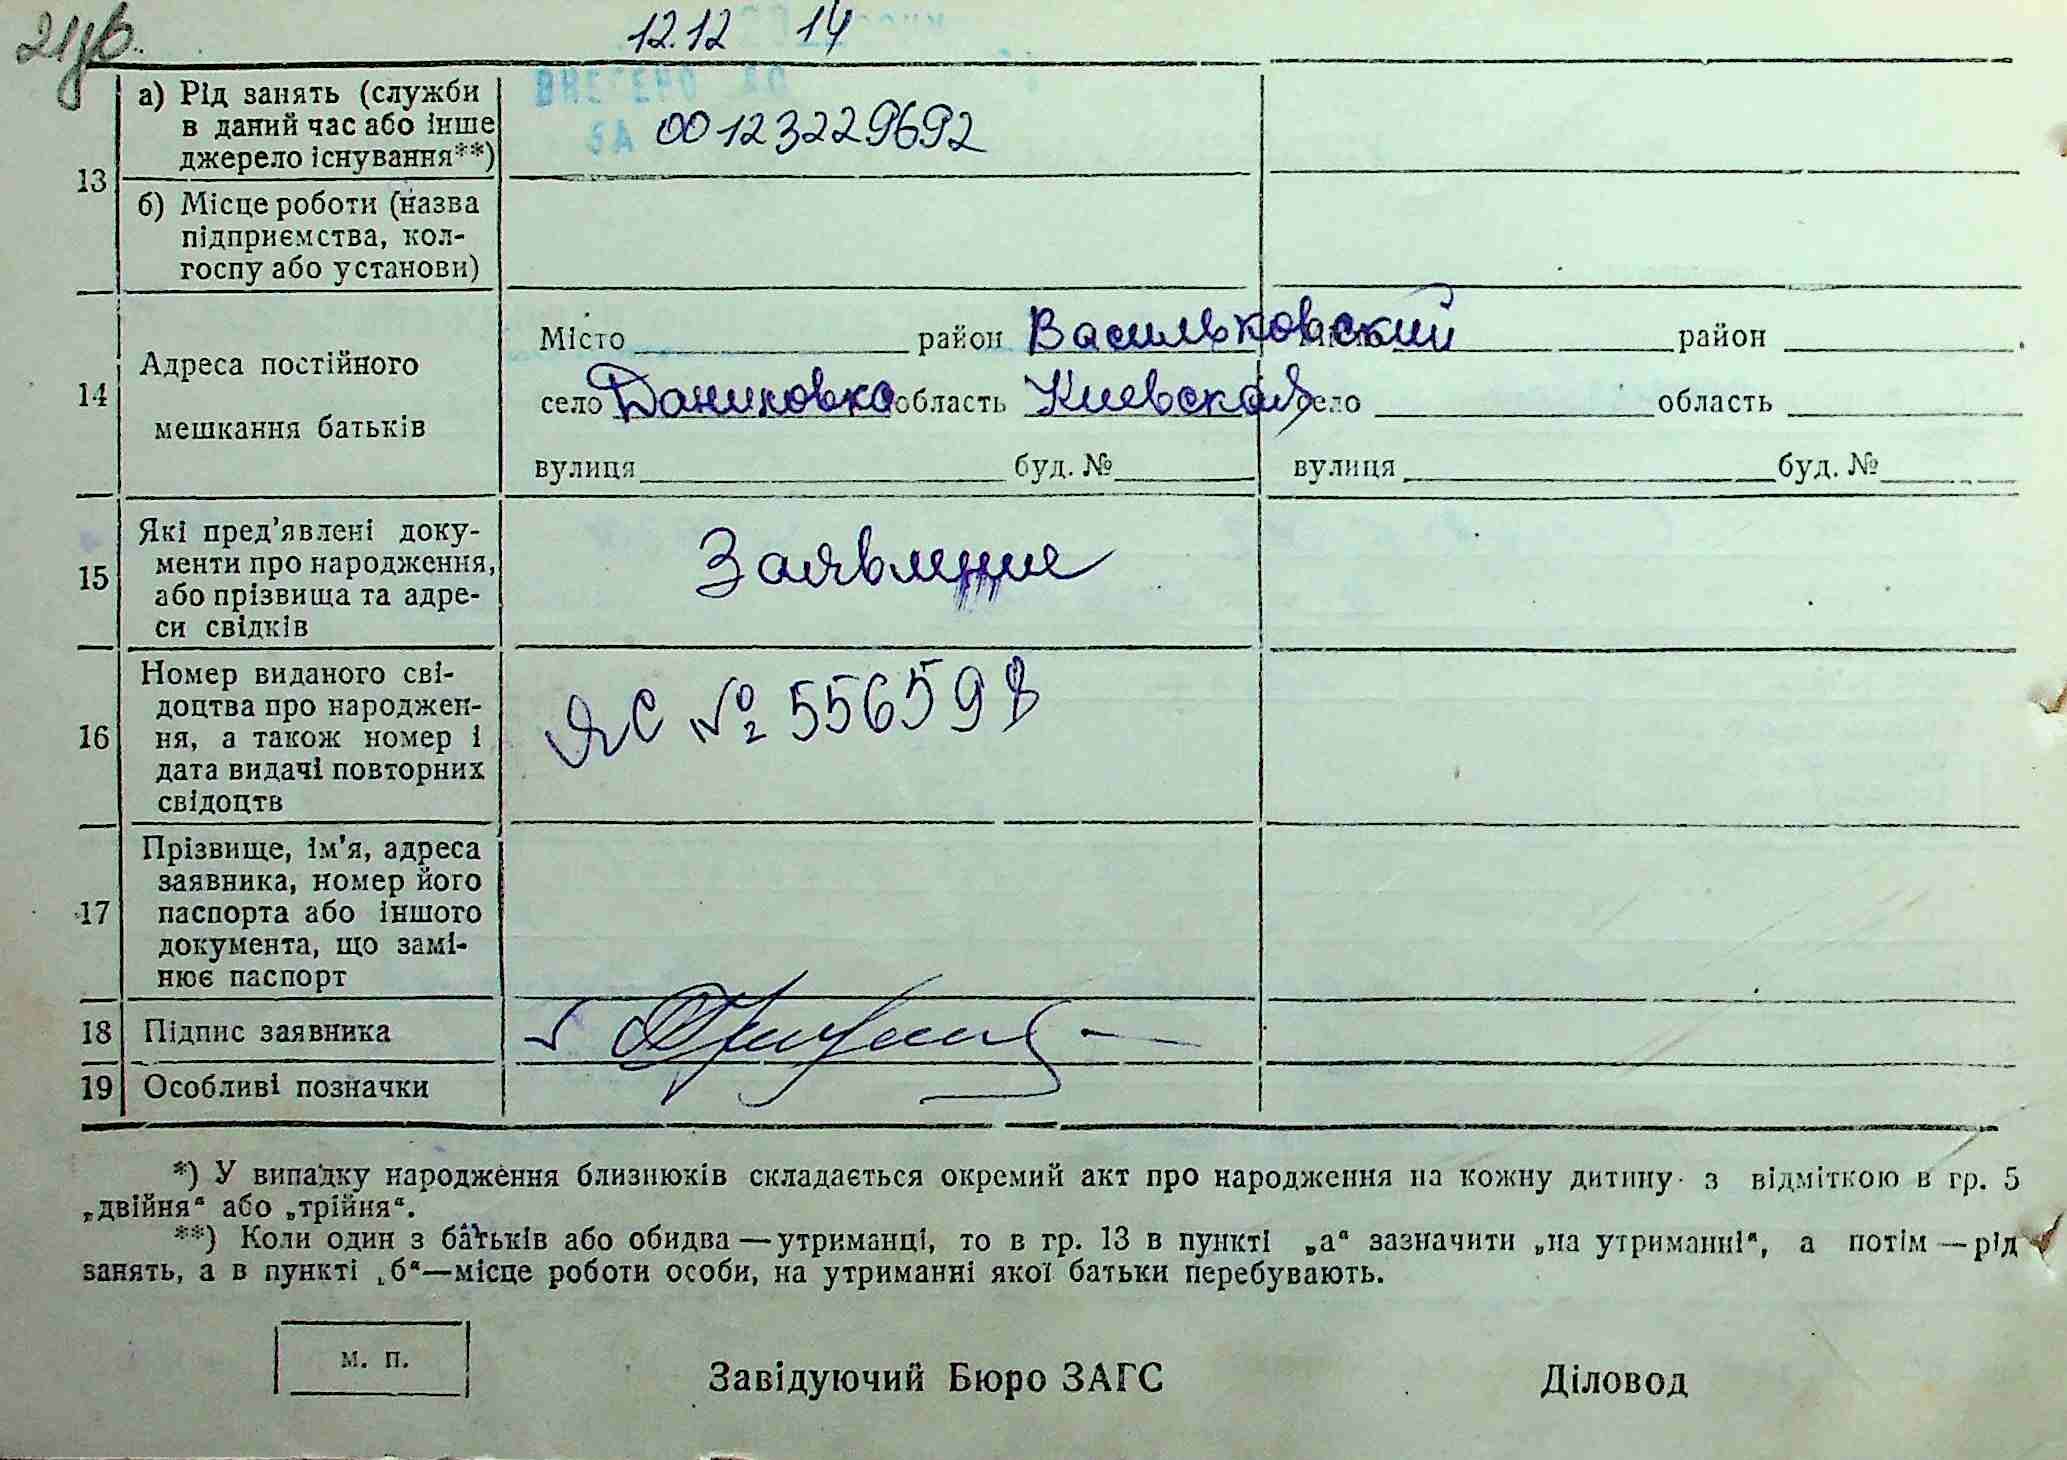 21зв.
12.12 14
ВНЕСЕНО ДО
13
а) Рід занять (служби
в даний час або інше
джерело існування**)
001 23229692
б) Місце роботи (назва
підприємства, кол-
госпу або установи)
14
Адреса постійного
мешкання батьків
Місто район Васильковский район
село Даниловка область Киевская село область
вулиця буд. № вулиця буд. №
15
Які пред'явлені доку-
менти про народження,
або прізвища та адре-
си свідків
Заявление
16
Номер виданого сві-
доцтва про народжен-
ня, а також номер і
дата видачі повторних
свідоцтв
ЯС № 556598
17
Прізвище, ім'я, адреса
заявника, номер його
паспорта або іншого
документа, що замі-
нює паспорт
18 Підпис заявника
19 Особливі позначки
*) У випадку народження близнюків складається окремий акт про народження на кожну дитину з відміткою в гр. 5
„двійня“ або „трійня“.
**) Коли один з батьків або обидва — утриманці, то в гр. 13 в пункті „а“ зазначити „на утриманні“, а потім — рід
занять, а в пункті „б“—місце роботи особи, на утриманні якої батьки перебувають.
м. п.
Завідуючий Бюро ЗАГС Діловод